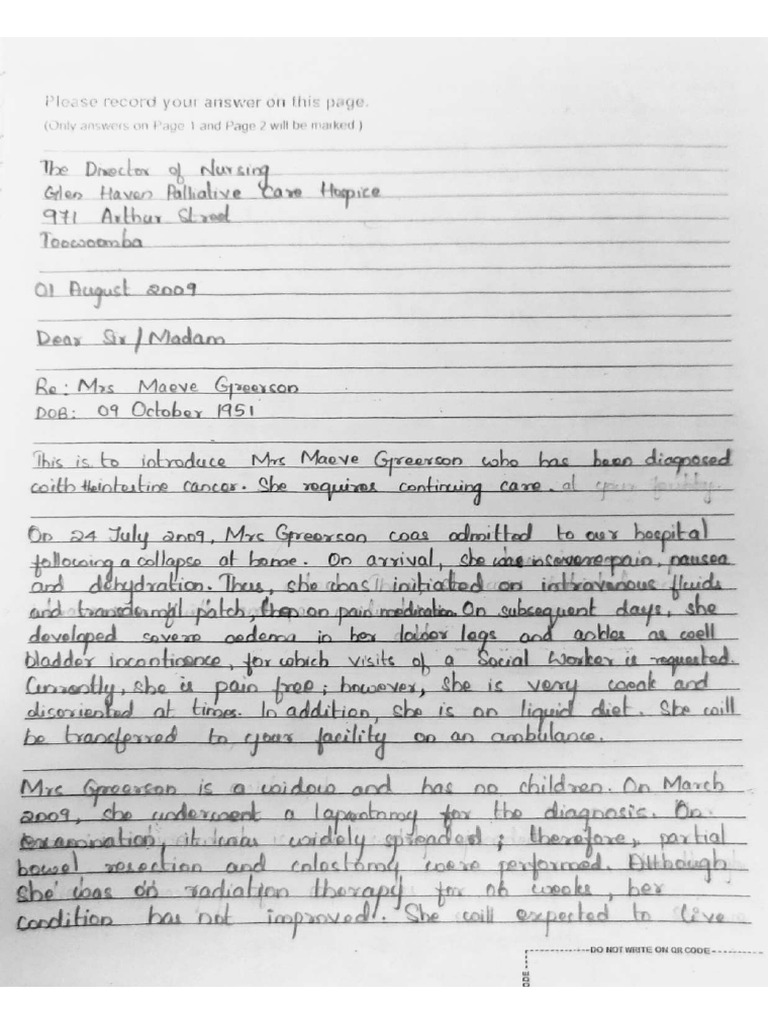 Please record your answer on this page.
(Only answers on Page 1 and Page 2 will be marked)
The Director of Nursing
Glen Haven Palliative Care Hospice
971 Arthur Street
Toowoomba
01 August 2009
Dear Sir/Madam
Re: Mrs Maeve Greerson
DOB: 09 October 1951
This is to introduce Mrs Maeve Greerson who has been diagnosed
with the intestine cancer. She requires continuing care. at your facility.
On 24 July 2009, Mrs Greerson was admitted to our hospital
following a collapse at home. On arrival, she was in severe pain, nausea
and dehydration. Thus, she was initiated on intravenous fluids
and transdermal patch, then on pain medication. On subsequent days, she
developed severe oedema in her lower legs and ankles as well
bladder incontinence, for which visits of a Social Worker is requested.
Currently, she is pain free; however, she is very weak and
disoriented at times. In addition, she is on liquid diet. She will
be transferred to your facility on an ambulance.
Mrs Greerson is a widow and has no children. On March
2009, she underwent a lapartomy for the diagnosis. On
examination, it was widely spreaded; therefore, partial
bowel resection and colostomy were performed. Although
she was on radiation therapy for 06 weeks, her
condition has not improved. She will expected to live
DO NOT WRITE ON QR CODE